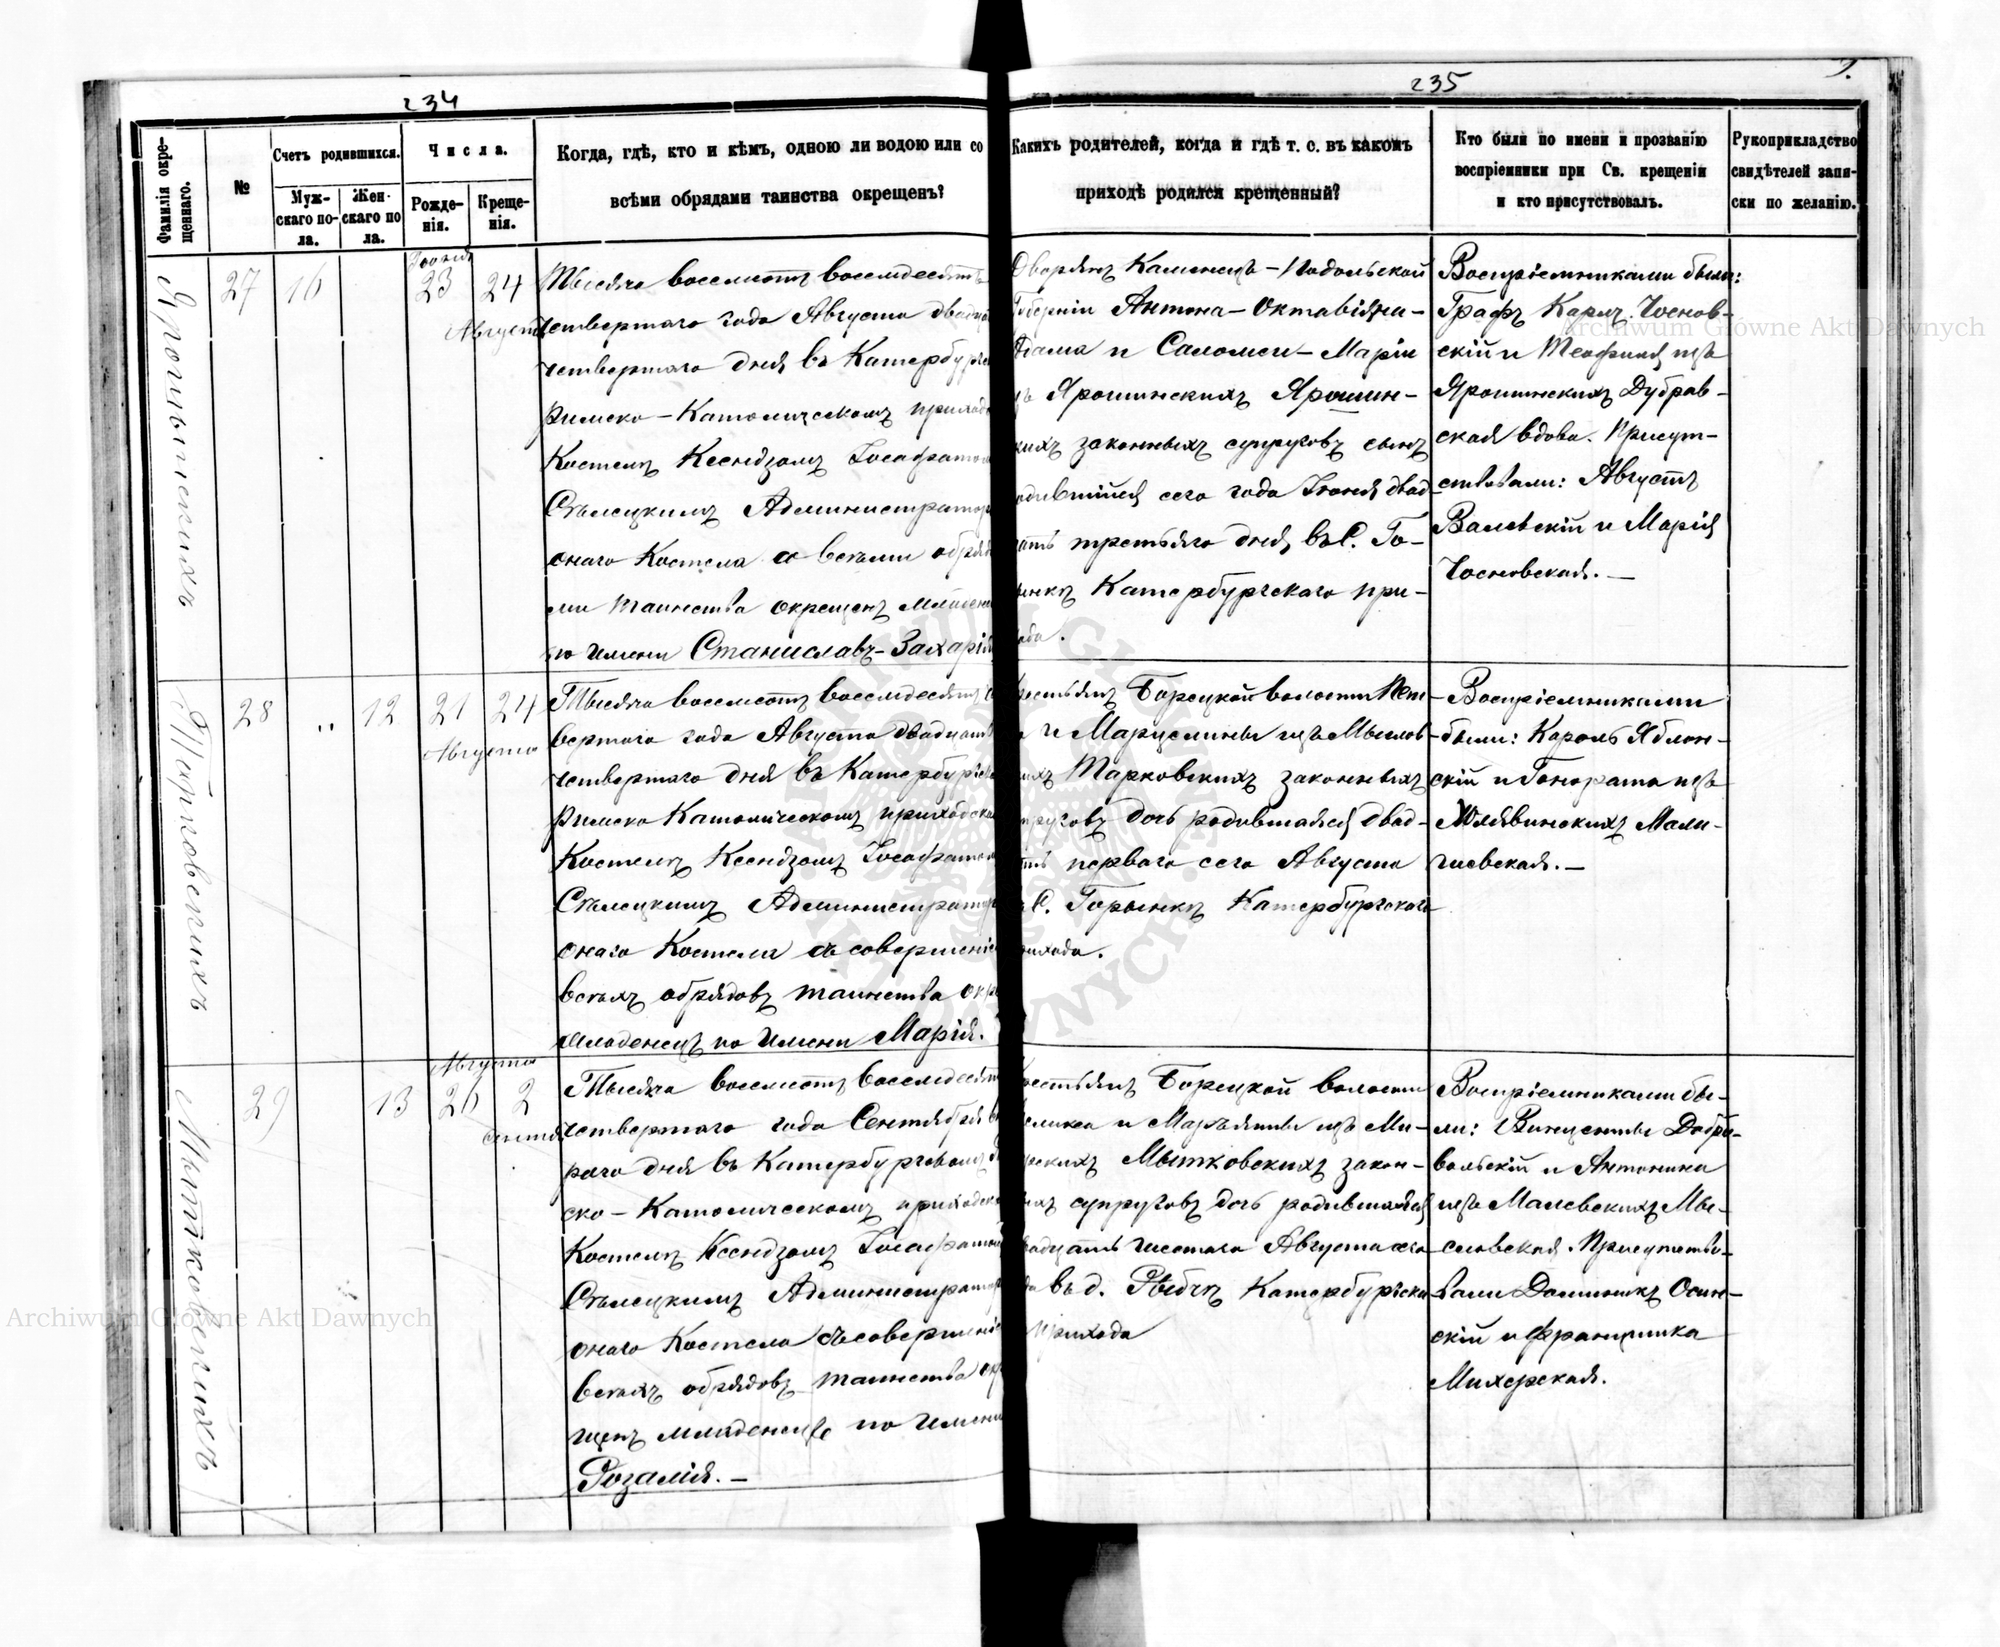 234
235
Фамилія окре-
щеннаго.
№
Счетъ родившихся.
Муж-
скаго по-
ла.
Жен-
скаго по
ла.
Числа.
Рожде-
нія.
Креще-
нія.
Когда, гдѣ, кто и кѣмъ, одною ли водою или со
всѣми обрядами таинства окрещенъ?
Какихъ родителей, когда и гдѣ т. е. въ какомъ
приходѣ родился крещенный?
Кто были по имени и прозванію
воспріемники при Св. крещеніи
и кто присутствовалъ.
Рукоприкладство
свидѣтелей запи-
ски по желанію.
Ярошинскихъ
27
16
Іюня
23
24
Августа
Тысяча восемьсотъ восемдесятъ
четвертаго года Августа двадца
четвертаго дня въ Катербургс
Римско-Католическомъ приход
Костелѣ Ксендзомъ Іосафатом
Стѣлецкимъ Администратор
онаго Костела со всѣми обряд
ми таинства окрещенъ младен
по имени Станиславъ-Захарій
Дворянъ Каменецъ-Подольской
Губерніи Антона-Октавіяна-
Адама и Саломеи-Маріи
Ярошинскихъ Ярошин-
кихъ законныхъ супруговъ сынъ
одившійся сего года Іюня двад-
ать третьяго дня въ С. Го-
ынкѣ Катербургскаго при-
ода.
Воспріемниками были:
Графъ Карлъ Чоснов-
скій и Теофиля изъ
Ярошинскихъ Дубрав-
ская вдова. Присут-
ствовали: Августъ
Валевскій и Марія
Чосновская. —
28
12
21
24
Августа
Тысяча восемьсотъ восемдесятъ
вертаго года Августа двадцать
четвертаго дня въ Катербургск
Римско Католическомъ приходско
Костелѣ Ксендзомъ Іосафатом
Стѣлецкимъ Администратор
онаго Костела съ совершеніе
всѣхъ обрядовъ таинства окр
младенецъ по имени Марія.
рестьянъ Борецкой волости Пет-
и Марцелины изъ Мыслов-
ихъ Марковскихъ законныхъ
пруговъ дочь родившаяся двад-
ть перваго сего Августа
С. Горынкѣ Катербургскаго
рихода.
Воспріемниками
были: Кароль Яблон-
скій и Гонората изъ
Малиевская. —
Мытковскихъ
29
13
Августа
26
2
Сентя
Тысяча восемьсотъ восемдесят
четвертаго года Сентября в
раго дня въ Катербургскомъ
ско-Католическомъ приходско
Костелѣ Ксендзомъ Іосафатом
Стѣлецкимъ Администратор
онаго Костела съ совершеніе
всѣхъ обрядовъ таинства ок
щенъ младенецъ по имени
Розалія. —
рестьянъ Борецкой волости
еликса и Марьянны изъ Ми-
рскихъ Мытковскихъ закон-
ыхъ супруговъ дочь родившаяся
вадцать шестаго Августа сего
да въ д. Рыбчѣ Катербургска
прихода
Воспріемниками бы-
ли: Винцентый Добро-
вольскій и Антонина
изъ Малевскихъ Мы-
словская. Присутство-
вали Доминикъ Осин-
скій и Францишка
Михерская.
Archiwum Główne Akt Dawnych
Archiwum Główne Akt Dawnych